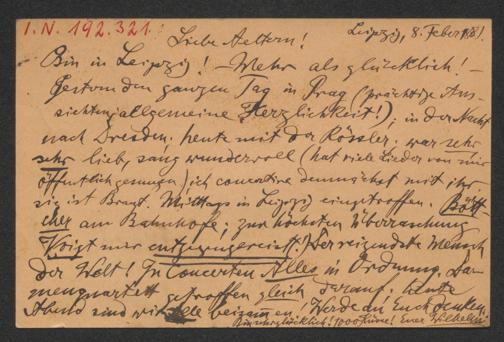 I. N. 192.321.
Leipzig, 8. Feber
Liebe Aeltern!
Bin in Leipzig! – Mehr als glücklich! –
Gestern den ganzen Tag in Prag (prächtige An-
sichten, allgemeine Herzlichkeit!); in der Nacht
nach Dresden; heute mit der Rössler; war sehr
sehr lieb, sang wundervoll (hat viele Lieder von mir
öffentlich gesungen) ich concertire demnächst mit ihr,
sie ist Braut. Mittags in Leipzig eingetroffen. Bött-
cher am Bahnhofe; zur höchsten Überraschung
Voigt mir entgegengereist! Der reizendste Mensch
der Welt! In Concerten Alles in Ordnung. Da-
menquartett getroffen gleich darauf. heute
Abend sind wir alle beisammen! Werde an Euch denken.
Bin unglücklich! 1000 Küsse! Euer Wilhelm